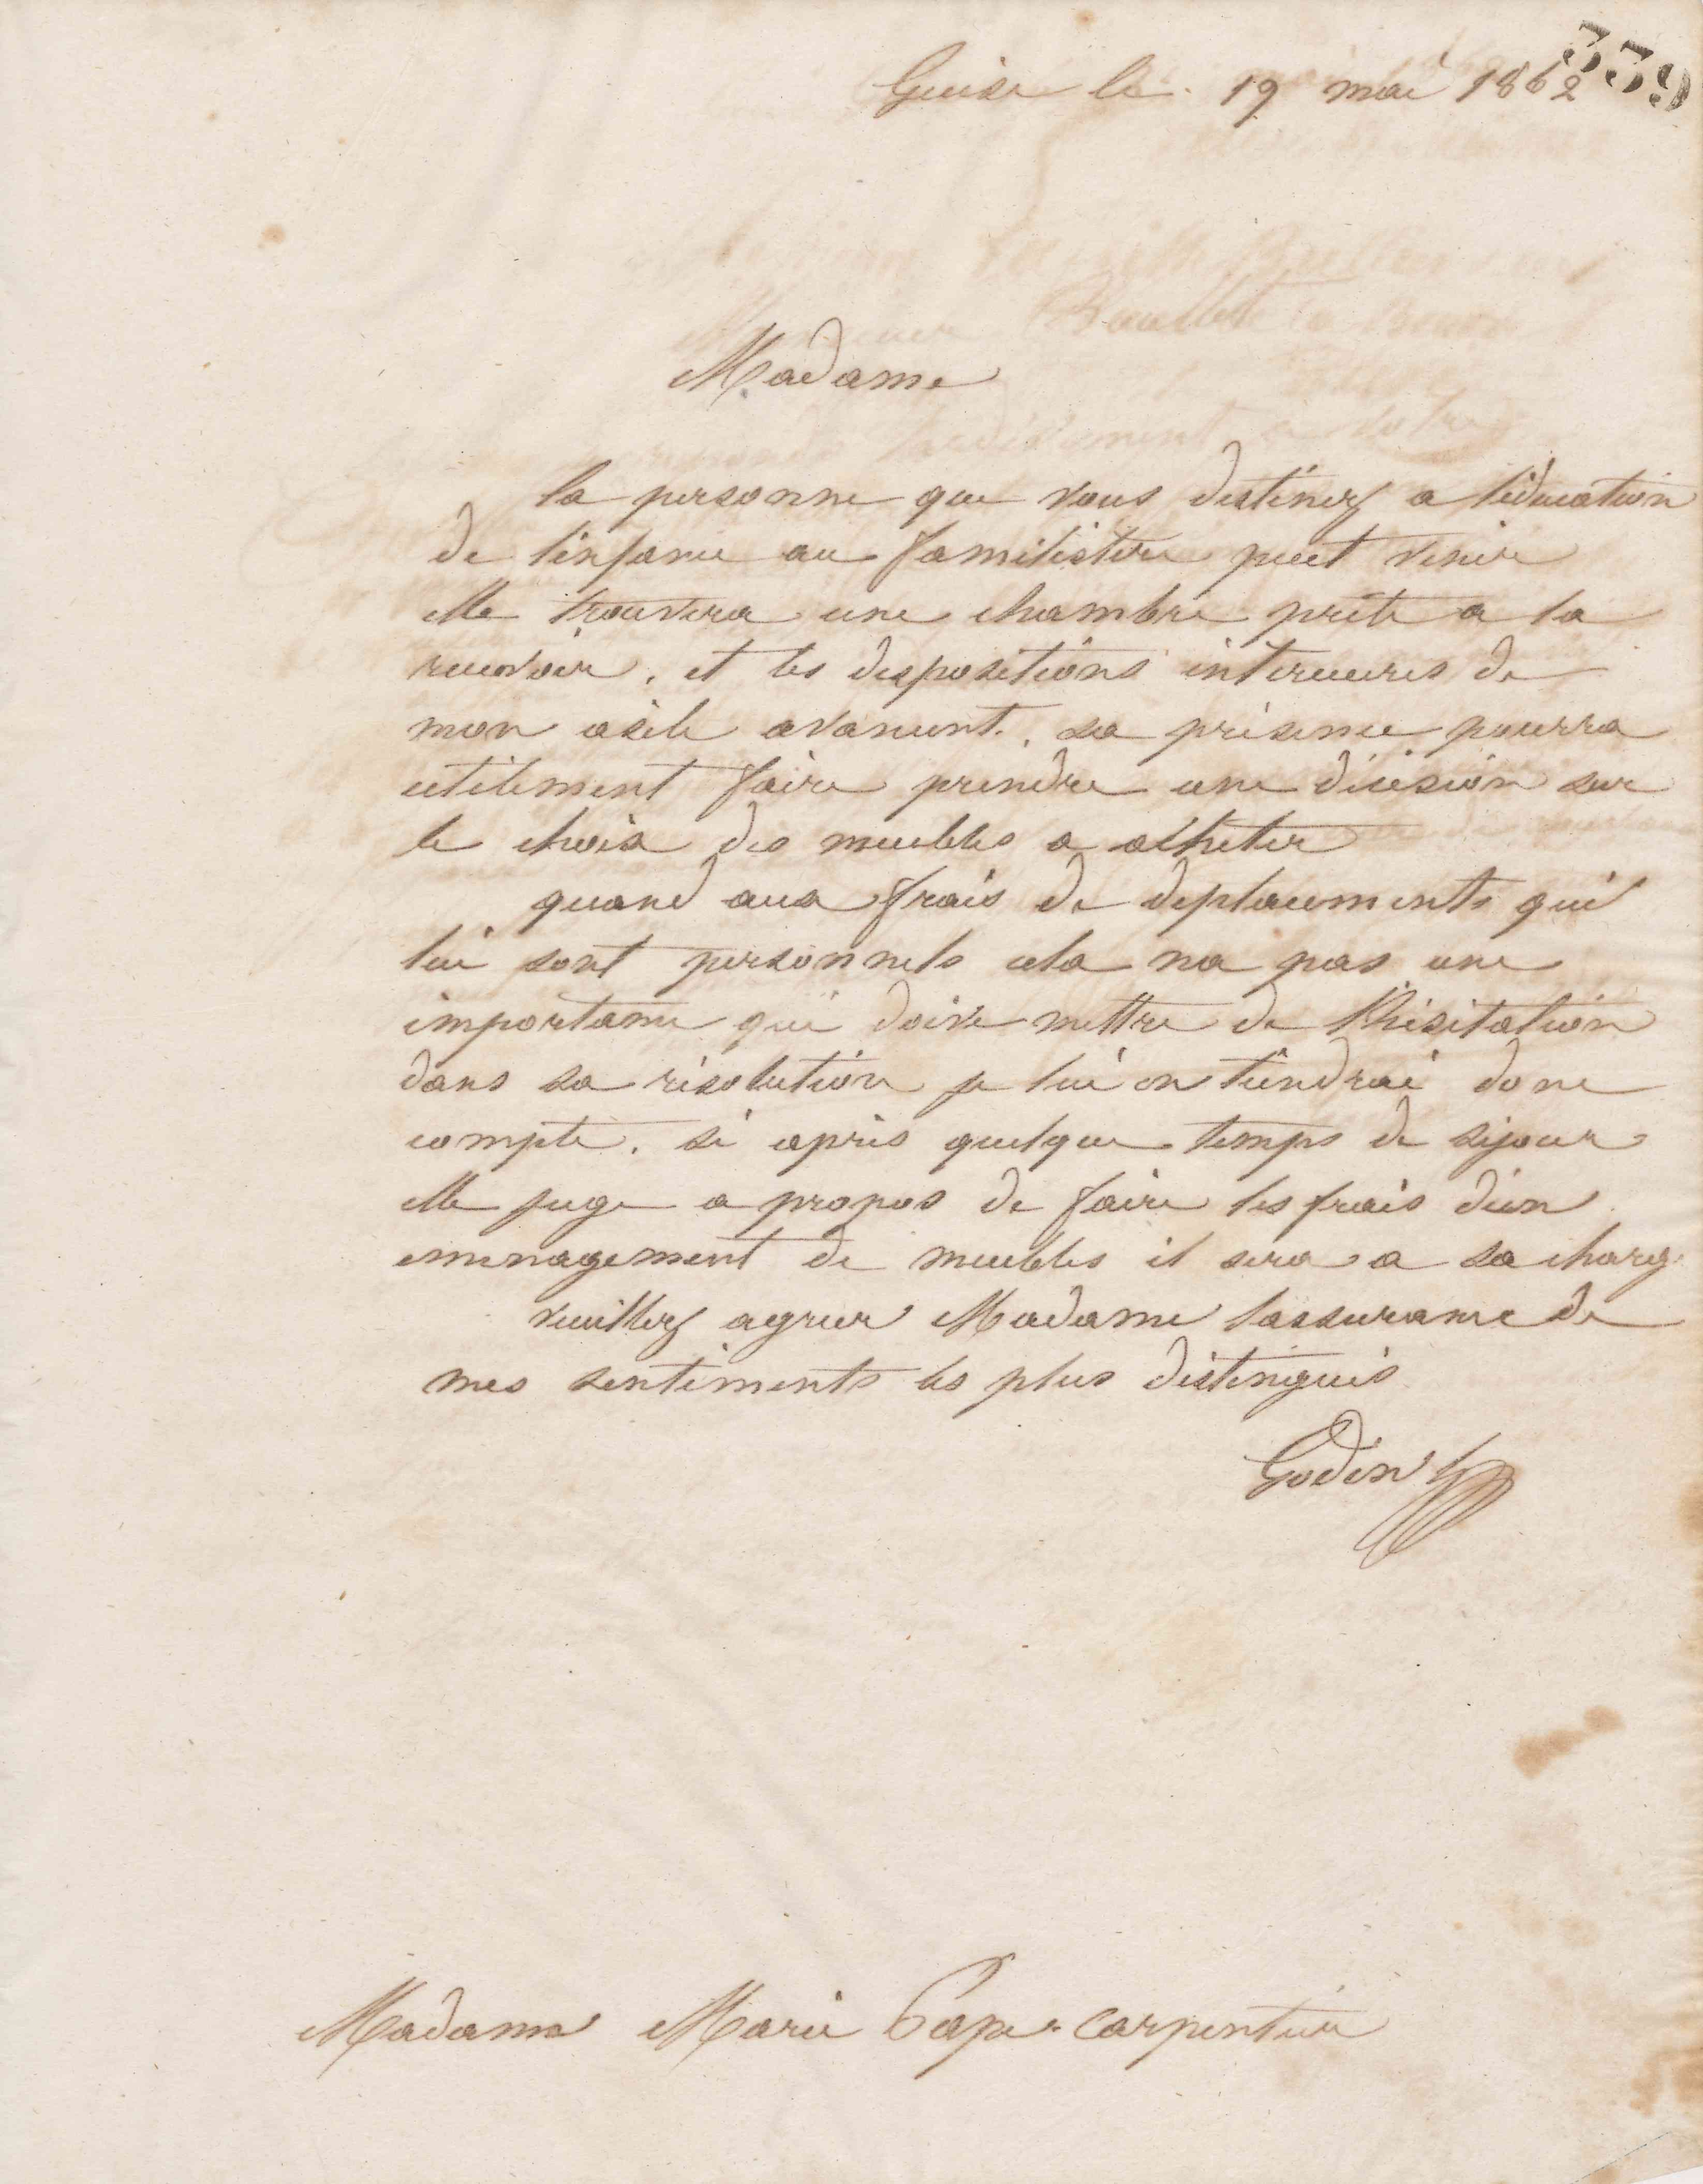 339
Guise le 19 mai 1862
Madame
la personne que vous destinez a léducation
de lenfance au familistère peut venir
elle trouvera une chambre prête a la
recevoir, et les dispositions interieures de
mon asile avancent, sa présence pourra
utilement faire prendre une décision sur
le choix des meubles a acheter
quand aux frais de deplacements qui
lui sont personnels cela na pas une
importance qui doive mettre de lhésitation
dans sa résolution je lui en tiendrai donc
compte. si après quelque temps de séjour
elle juge a propos de faire les frais dun
emenagement de meubles il sera a sa charge
veuillez agreer Madame lassurance de
mes sentiments les plus distingués
Godin
Madame Marie Pape-Carpentier